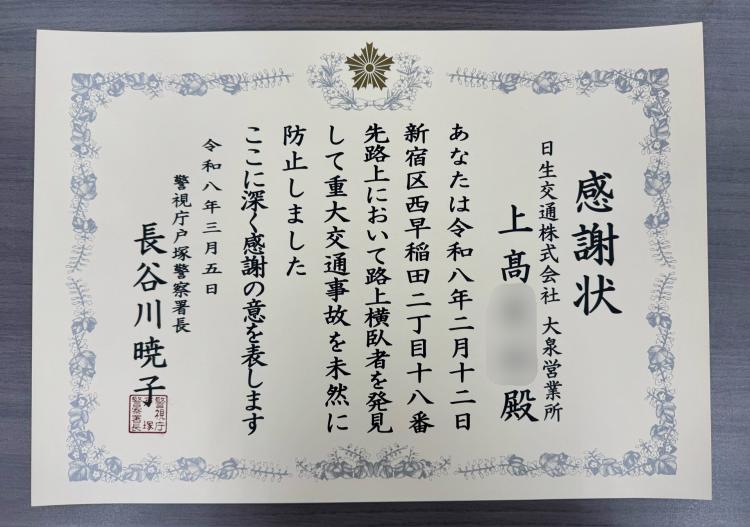 感謝状
日生交通株式会社 大泉営業所
上髙 殿
あなたは令和八年二月十二日
新宿区西早稲田二丁目十八番
先路上において路上横臥者を発見
して重大交通事故を未然に
防止しました
ここに深く感謝の意を表します
令和八年三月五日
警視庁戸塚警察署長
長谷川暁子
警視庁
戸塚
警察署長